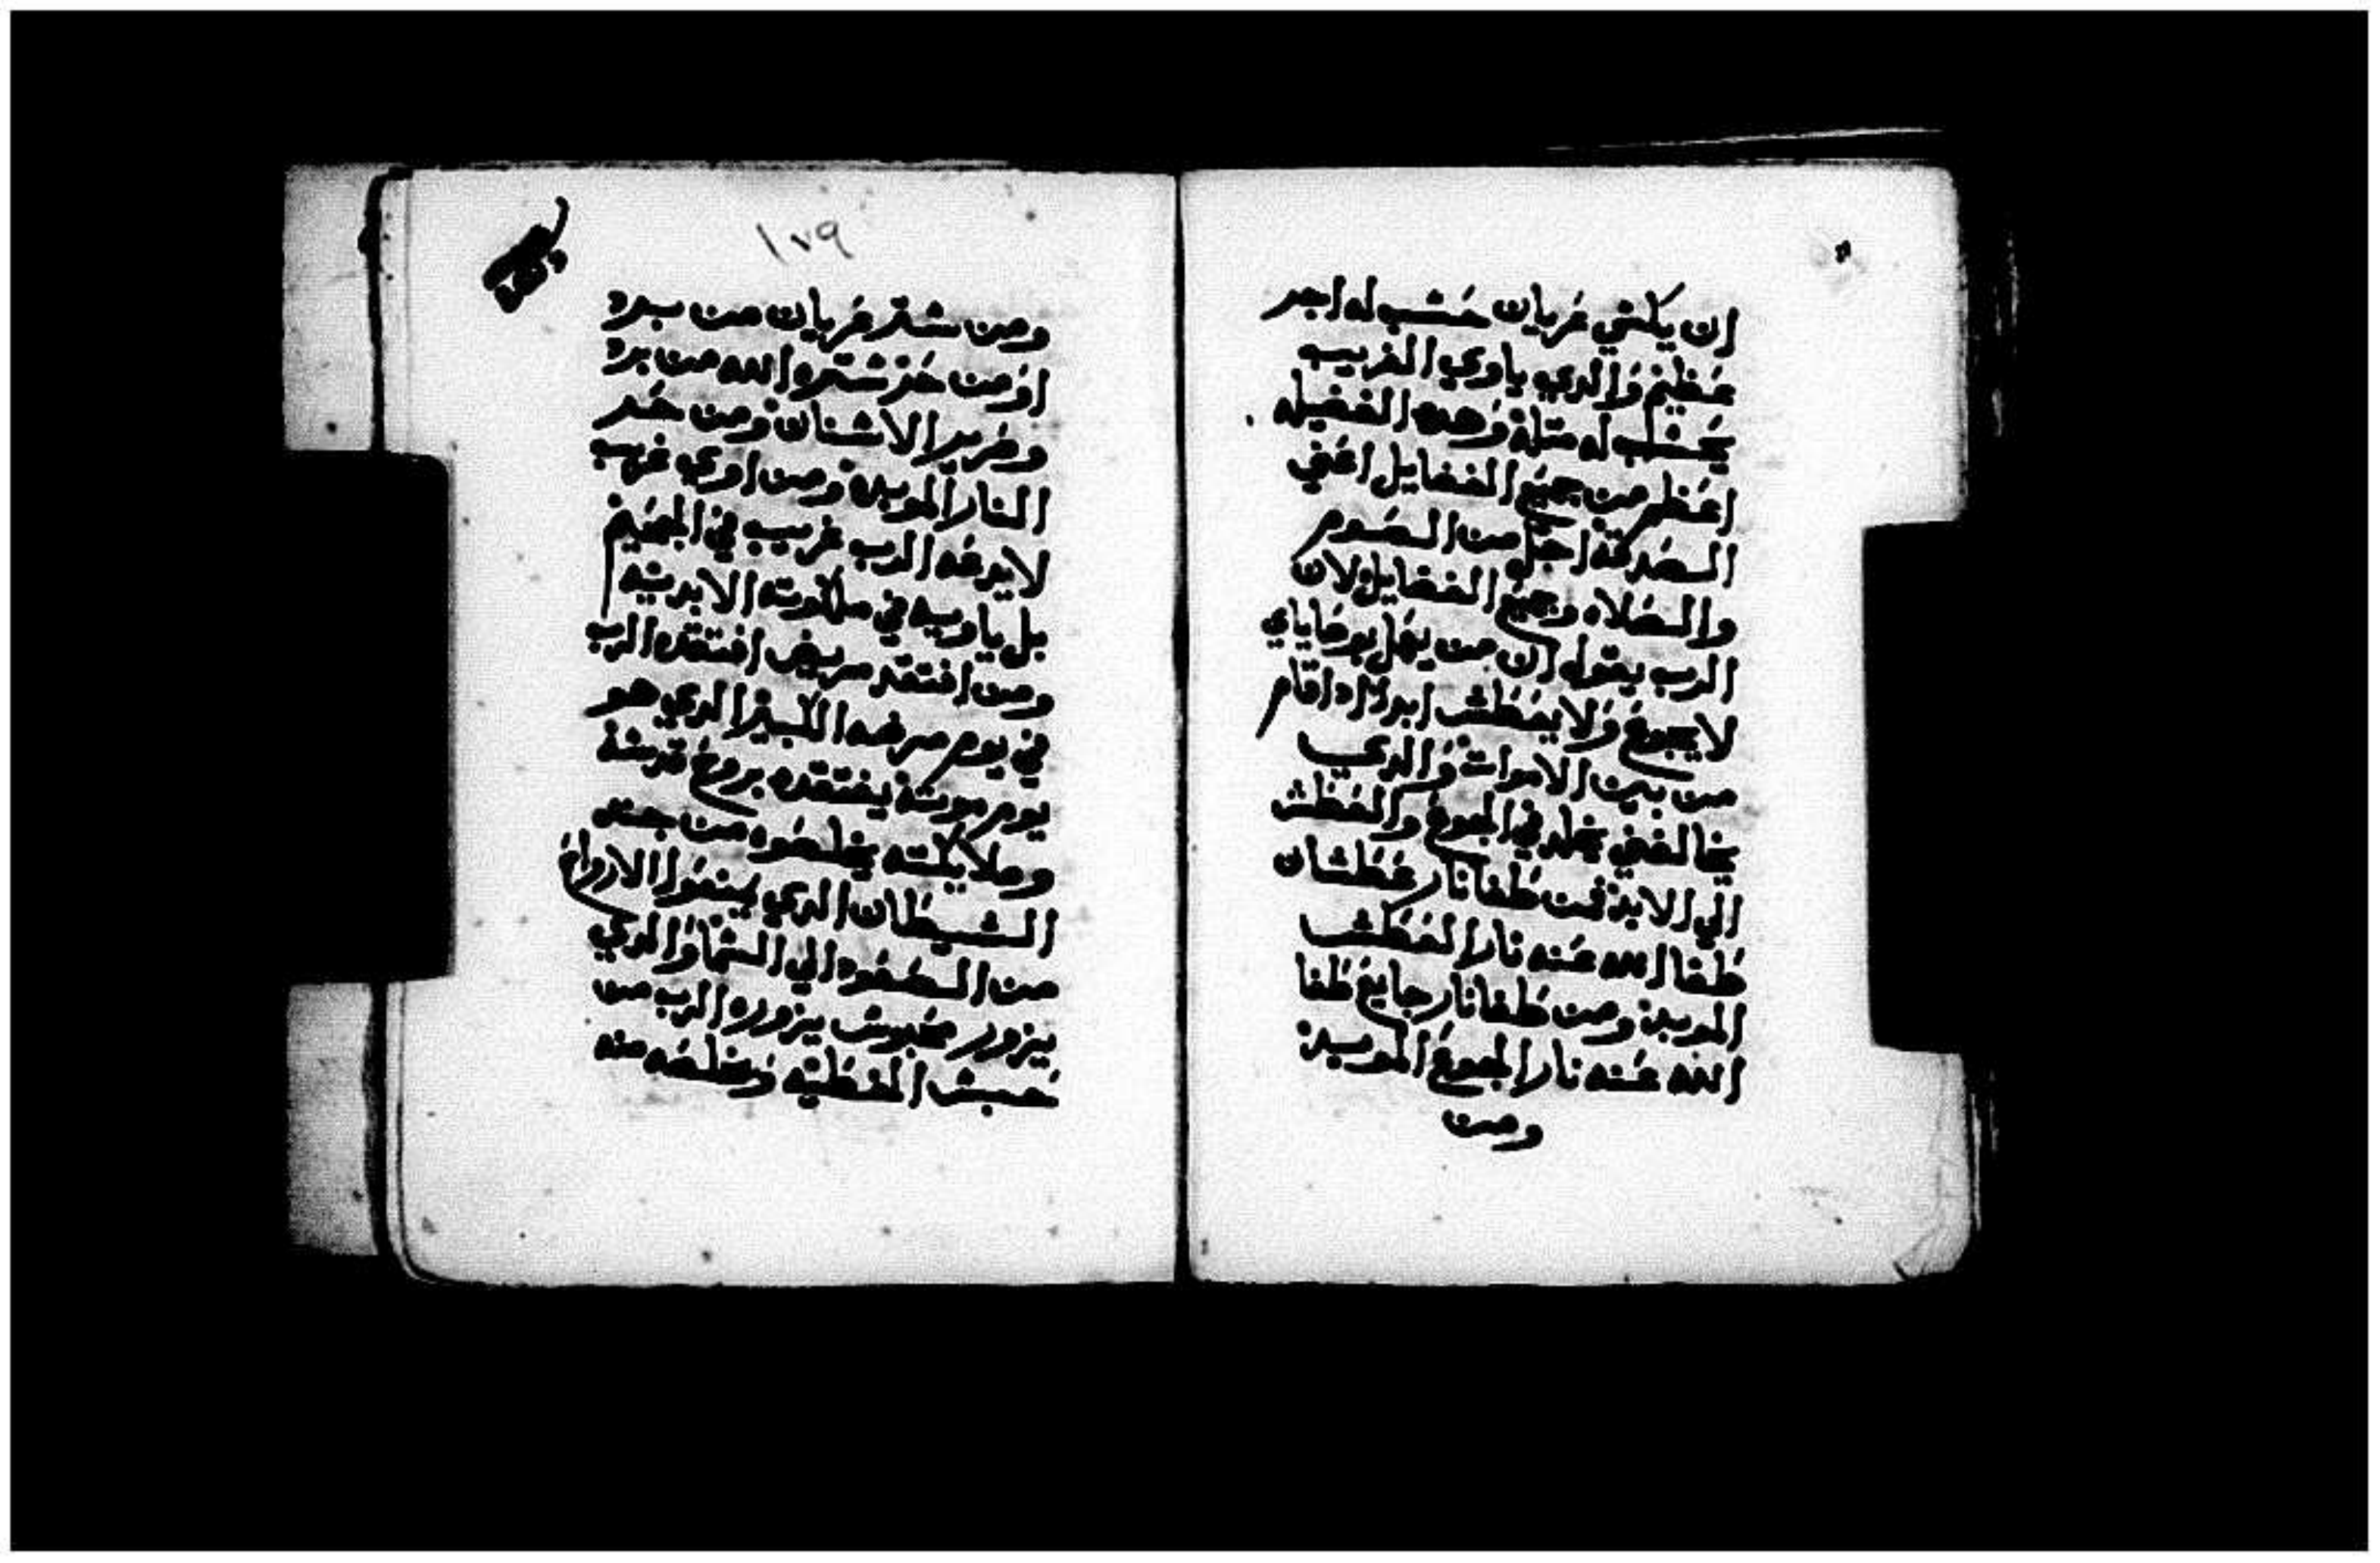 ان يكشي عريان حسب له اجر
عظيم والدي ياوي الغريب
يحسب له متله وهده الفضيله
اعظم من جميع الفضايل اعني
الصدقه اجل من الصوم
والصلاه وجميع الفضايل لان
الرب يقول ان من يعمل بوصاياي
لا يجوع ولا يعطش ابدا اداقام
من بين الاموات والدي
يخالفني يخلد في الجوع والعطش
الي الابد فمن طفا نار عطشان
طفا الله عنه نار العطش
الموبده ومن طفا نار جايع طفا
الله عنه نار الجوع الموبده
ومن
١٧٩
ومن شتر عريان من برد
اومن حر شتره الله من برد
وصرير الاشنان ومن حر
النار الموبده ومن اوي غريب
لايدعه الرب غريب في الجحيم
بل ياويه في ملكوته الابديه
ومن افتقد مريض افتقده الرب
في يوم مرضه الكبير الدي هو
يوم موته يفتقده بروح قدسه
وملايكته يخلصوه من جند
الشيطان الدي يمنعوا الارواح
من الصعود الي السما والدي
يزور محبوش يزوره الرب من
حبش الخطيه ويخلصه منه